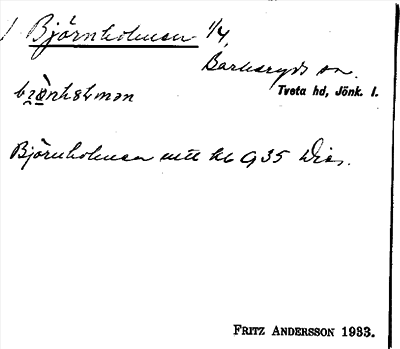 Björnholmen 1/4
Barkeryds sn.
Tveta hd, Jönk. l.
Björnholmen mtl kb 935 Dis.
FRITZ ANDERSSON 1933.